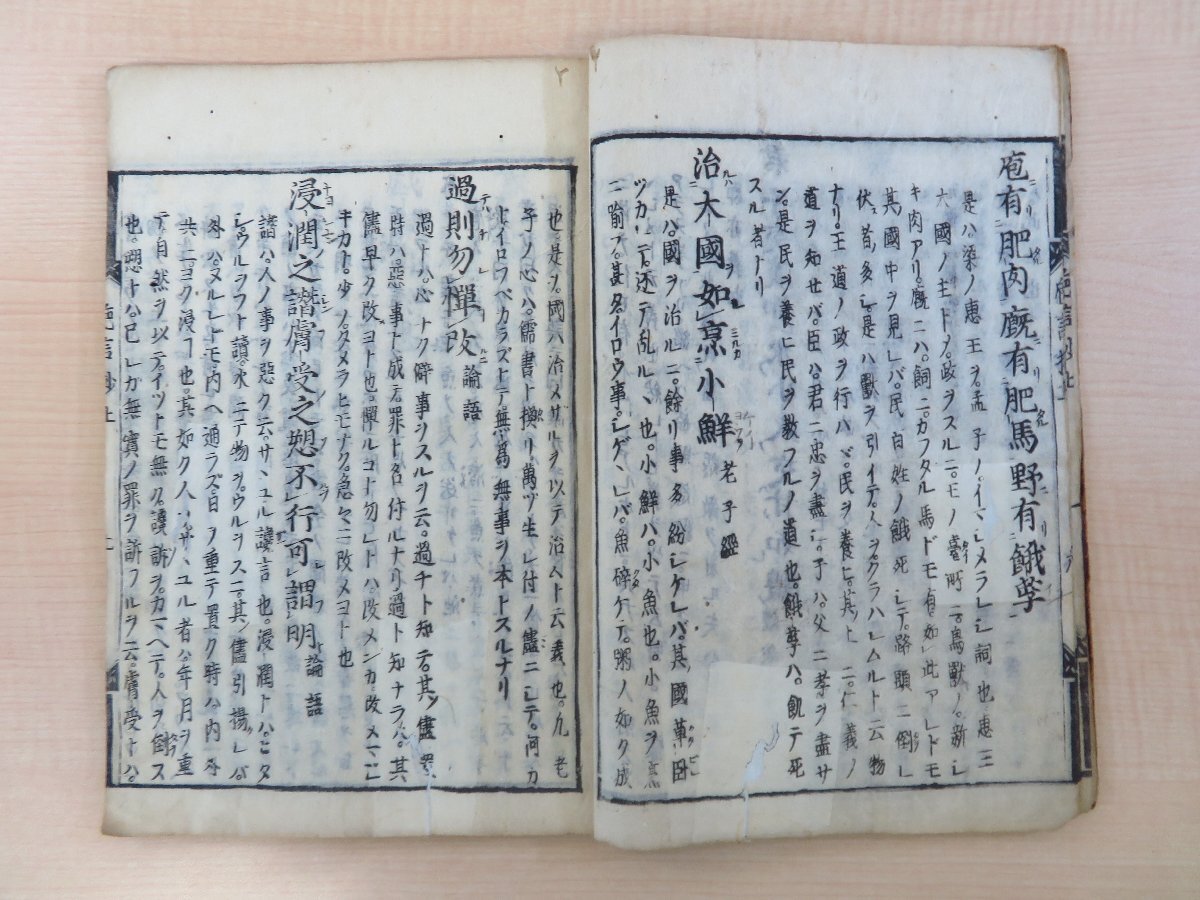 庖有肥肉廐有肥馬野有餓莩
是ハ梁ノ恵王ヲ孟子ノイマシメラレシ詞也恵王
大國ノ主トシ政ヲスル二モノ臺所二鳥獣ノ新シ
キ肉アリ廐二ハ飼二カフタル馬ドモ有如此アレドモ
其國中ヲ見レバ民百姓ノ餓死シテ路頭二倒レ
伏者多シ是ハ獸ヲ引イテ人ヲクラハムルト云物
ナリ王道ノ政ヲ行ハバ民ヲ養ヒ其上二仁義ノ
道ヲ知セバ臣ハ君二忠ヲ盡シ子ハ父二孝ヲ盡サ
ン是民ヲ養ヒ民ヲ教フルノ道也餓莩ハ飢テ死
スル者ナリ
治大國如烹小鮮 老子經
是ハ國ヲ治ル二餘リ事多紛シケレバ其國草臥
ツカレテ还テ乱ルヽ也小鮮ハ小魚也小魚ヲ烹
二喩フ甚タイロウ事シゲヽレバ魚碎ケテ粥ノ如ク成
也夛ヲ國ハ治メサルヲ以テ治ムト云義也凢老
子ノ心ハ儒書ト換リ萬ヅ生レ付ノ儘ニシテ何カ
トイロフベカラズトテ無爲無事ヲ本トスルナリ
過則勿憚改 論語
過トハ心ナク僻事シスルヲ云過チト知テ其儘置
時ハ惡事ト成テ罪ト名付ルナリ過ト知ナラハ其
儘早ク改ヨト也憚ルコト勿レトハ改メンカ改メマシ
キカト少ノタメラヒモナク急々ニ改メヨト也
浸潤之譖膚受之愬不行可謂明 論語
譖ハ人ノ事ヲ惡ク云サヽユル讒言也浸潤トハヒタ
シウルヲフト讀水ニテ物ヲウルヲスニ其儘引揚レバ
外ハヌルレトモ内ヘ通ラズ日ヲ重テ置ク時ハ内外
共ニヨク浸フ也其如ク人ハサヽユル者ハ年月ヲ重
テ自然ヲ以テイツトモ無ク讒訴ヲカマヘテ人ヲ倒ス
也愬トハ己レガ無實ノ罪ヲ訴フルヲ云膚受トハ